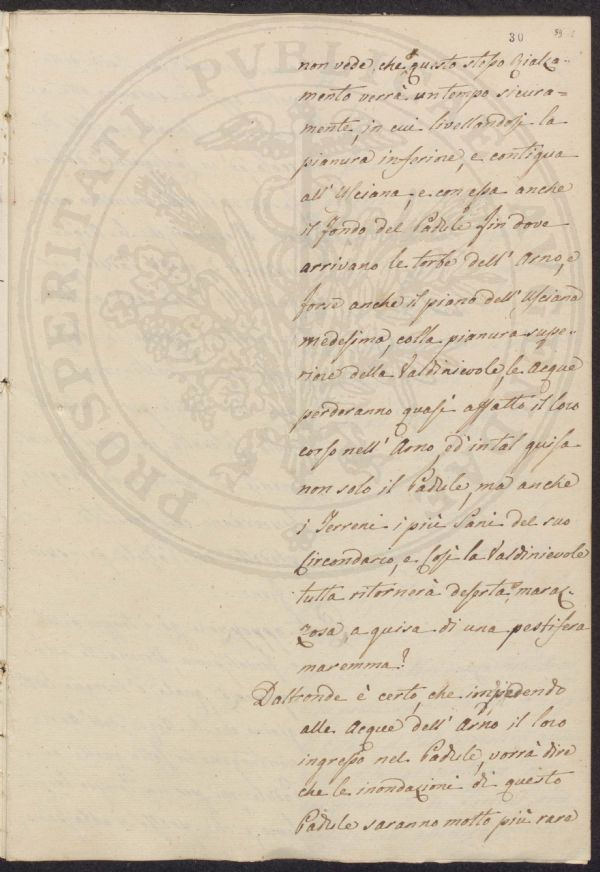 30
non vede che questo stesso Rialza-
mento verrà un tempo sicura-
mente, in cui livellandosi la
pianura inferiore, e contigua
all' Usciana, e con essa anche
il fondo del Padule fin dove
arrivano le torbe dell' Arno, e
forse anche il piano dell' Usciana
medesima, colla pianura supe-
riore della Valdinievole, le Acque
perderanno quasi affatto il loro
corso nell' Arno, ed in tal guisa
non solo il Padule, ma anche
i Terreni i più Sani del suo
Circondario, e Così la Valdinievole
tutta ritornerà deserta, maraz-
zosa a guisa di una pestifera
maremma?
Daltronde è certo, che impedendo
alle Acque dell' Arno il loro
ingresso nel Padule, vorrà dire
che le inondazioni di questo
Padule saranno molto più rare
PROSPERITATI PUBLICAE AUGENDAE